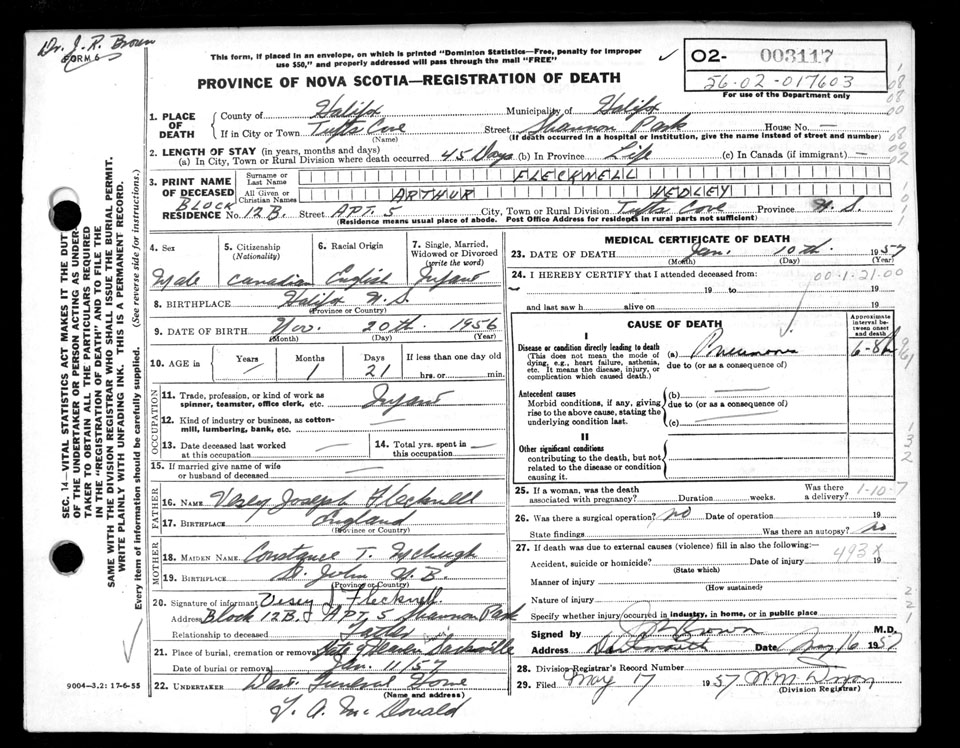 Dr. J. R. Brown
FORM 6
This form, if placed in an envelope, on which is printed "Dominion Statistics—Free, penalty for improper
use $50," and properly addressed will pass through the mail "FREE"
✓
O2- 003117
56-02-017603
For use of the Department only
PROVINCE OF NOVA SCOTIA—REGISTRATION OF DEATH
1. PLACE OF DEATH
County of Halifax Municipality of Halifax
If in City or Town Tufts Cove Street Shannon Park House No. —
(Name) (If death occurred in a hospital or institution, give the name instead of street and number)
2. LENGTH OF STAY (in years, months and days)
(a) In City, Town or Rural Division where death occurred 45 Days (b) In Province Life (c) In Canada (if immigrant) —
3. PRINT NAME OF DECEASED
Surname or Last Name FLECKNELL
All Given or Christian Names ARTHUR HEDLEY
BLOCK
RESIDENCE No. 12B. Street APT. 5 City, Town or Rural Division Tufts Cove Province N.S.
(Residence means usual place of abode. Post Office Address for residents in rural parts not sufficient)
4. Sex
Male
5. Citizenship (Nationality)
Canadian
6. Racial Origin
English
7. Single, Married, Widowed or Divorced (write the word)
Infant
8. BIRTHPLACE Halifax N.S.
(Province or Country)
9. DATE OF BIRTH Nov. 20th. 1956
(Month) (Day) (Year)
10. AGE in Years Months Days If less than one day old
— 1 21 hrs. or min.
OCCUPATION
11. Trade, profession, or kind of work as spinner, teamster, office clerk, etc. Infant
12. Kind of industry or business, as cotton-mill, lumbering, bank, etc. —
13. Date deceased last worked at this occupation —
14. Total yrs. spent in this occupation —
15. If married give name of wife or husband of deceased —
FATHER
16. NAME Vesey Joseph Flecknell
17. BIRTHPLACE England
(Province or Country)
MOTHER
18. MAIDEN NAME Constance T. McHugh
19. BIRTHPLACE St. John N.B.
(Province or Country)
20. Signature of informant Vesey J Flecknell
Address Block 12B. APT. 5 Shannon Park
Relationship to deceased Father
21. Place of burial, cremation or removal Gate of Heaven Sackville
Date of burial or removal Jan. 11/57
22. UNDERTAKER Dart. Funeral Home
(Name and address)
9004-3.2: 17-6-55
MEDICAL CERTIFICATE OF DEATH
23. DATE OF DEATH Jan. 10th. 1957
(Month) (Day) (Year)
24. I HEREBY CERTIFY that I attended deceased from:
00-1-21.00
19 to 19
and last saw h alive on 19
CAUSE OF DEATH
Approximate interval between onset and death
I
Disease or condition directly leading to death
(This does not mean the mode of dying, e.g., heart failure, asthenia, etc. It means the disease, injury, or complication which caused death.)
(a) Pneumonia 6-8h
due to (or as a consequence of)
Antecedent causes
Morbid conditions, if any, giving rise to the above cause, stating the underlying condition last.
(b) —
due to (or as a consequence of)
(c) —
II
Other significant conditions
contributing to the death, but not related to the disease or condition causing it.
25. If a woman, was the death associated with pregnancy? Duration weeks. Was there a delivery? 1-10-7
26. Was there a surgical operation? no Date of operation 19
State findings Was there an autopsy? no
27. If death was due to external causes (violence) fill in also the following:—
493X
Accident, suicide or homicide? Date of injury 19
(State which)
Manner of injury
(How sustained)
Nature of injury
Specify whether injury occurred in industry, in home, or in public place
Signed by J R Brown M.D.
Address Dartmouth Date May 16 1957
28. Division Registrar's Record Number
29. Filed May 17 1957
(Division Registrar)
T. A. McDonald
SEC. 14—VITAL STATISTICS ACT MAKES IT THE DUTY
OF THE UNDERTAKER OR PERSON ACTING AS UNDER-
TAKER TO OBTAIN ALL THE PARTICULARS REQUIRED
IN THE "REGISTRATION OF DEATH" AND TO FILE THE
SAME WITH THE DIVISION REGISTRAR WHO SHALL ISSUE THE BURIAL PERMIT.
WRITE PLAINLY WITH UNFADING INK. THIS IS A PERMANENT RECORD.
Every item of information should be carefully supplied. (See reverse side for instructions.)